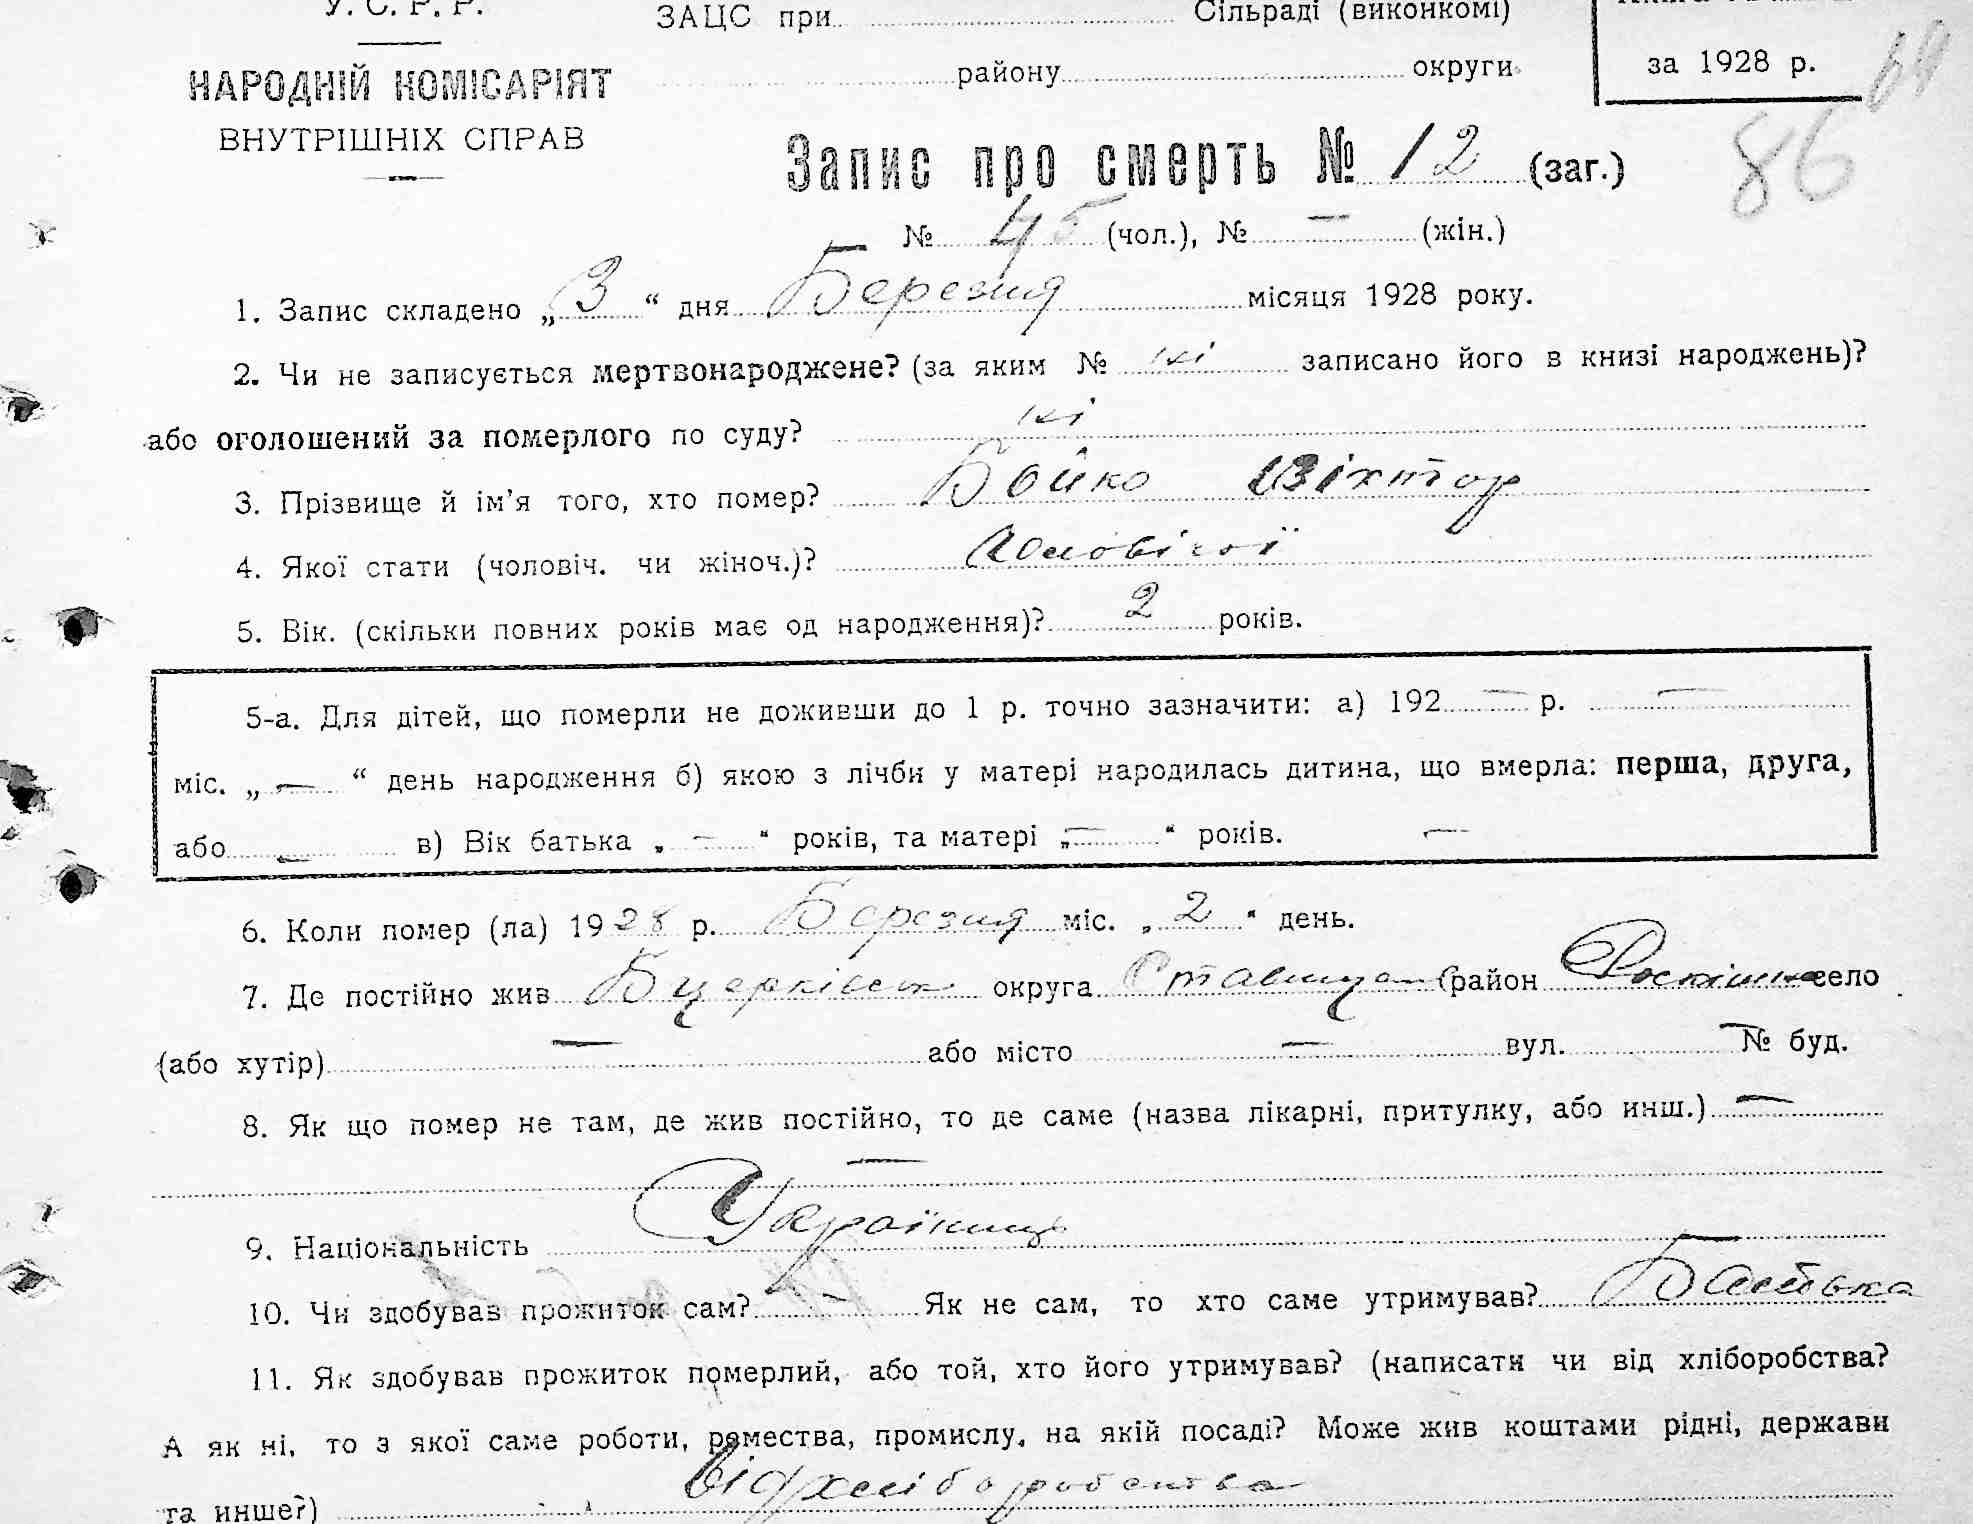 У. С. Р. Р.
ЗАЦС при Сільраді (виконкомі)
НАРОДНІЙ КОМІСАРІЯТ
ВНУТРІШНІХ СПРАВ
району округи
за 1928 р.
86
Запис про смерть № 12 (заг.)
№ (чол.), № — (жін.)
1. Запис складено „3“ дня Березня місяця 1928 року.
2. Чи не записується мертвонароджене? (за яким № ні записано його в книзі народжень)?
або оголошений за померлого по суду? ні
3. Прізвище й ім'я того, хто помер? Бойко Віктор
4. Якої стати (чоловіч. чи жіноч.)? Чоловічої
5. Вік. (скільки повних років має од народження)? 2 років.
5-а. Для дітей, що померли не доживши до 1 р. точно зазначити: а) 192 — р. —
міс. „ — “ день народження б) якою з лічби у матері народилась дитина, що вмерла: перша, друга,
або — в) Вік батька „ — “ років, та матері „ — “ років. —
6. Коли помер (ла) 1928 р. Березня міс. „2“ день.
7. Де постійно жив Бцерківськ округа Ставищен район Роскішна село
(або хутір) — або місто — вул. — № буд.
8. Як що помер не там, де жив постійно, то де саме (назва лікарні, притулку, або инш.) —
—
9. Національність Українець
10. Чи здобував прожиток сам? — Як не сам, то хто саме утримував? Батька
11. Як здобував прожиток померлий, або той, хто його утримував? (написати чи від хліборобства?
А як ні, то з якої саме роботи, ремества, промислу, на якій посаді? Може жив коштами рідні, держави
та инше?) від хліборобства